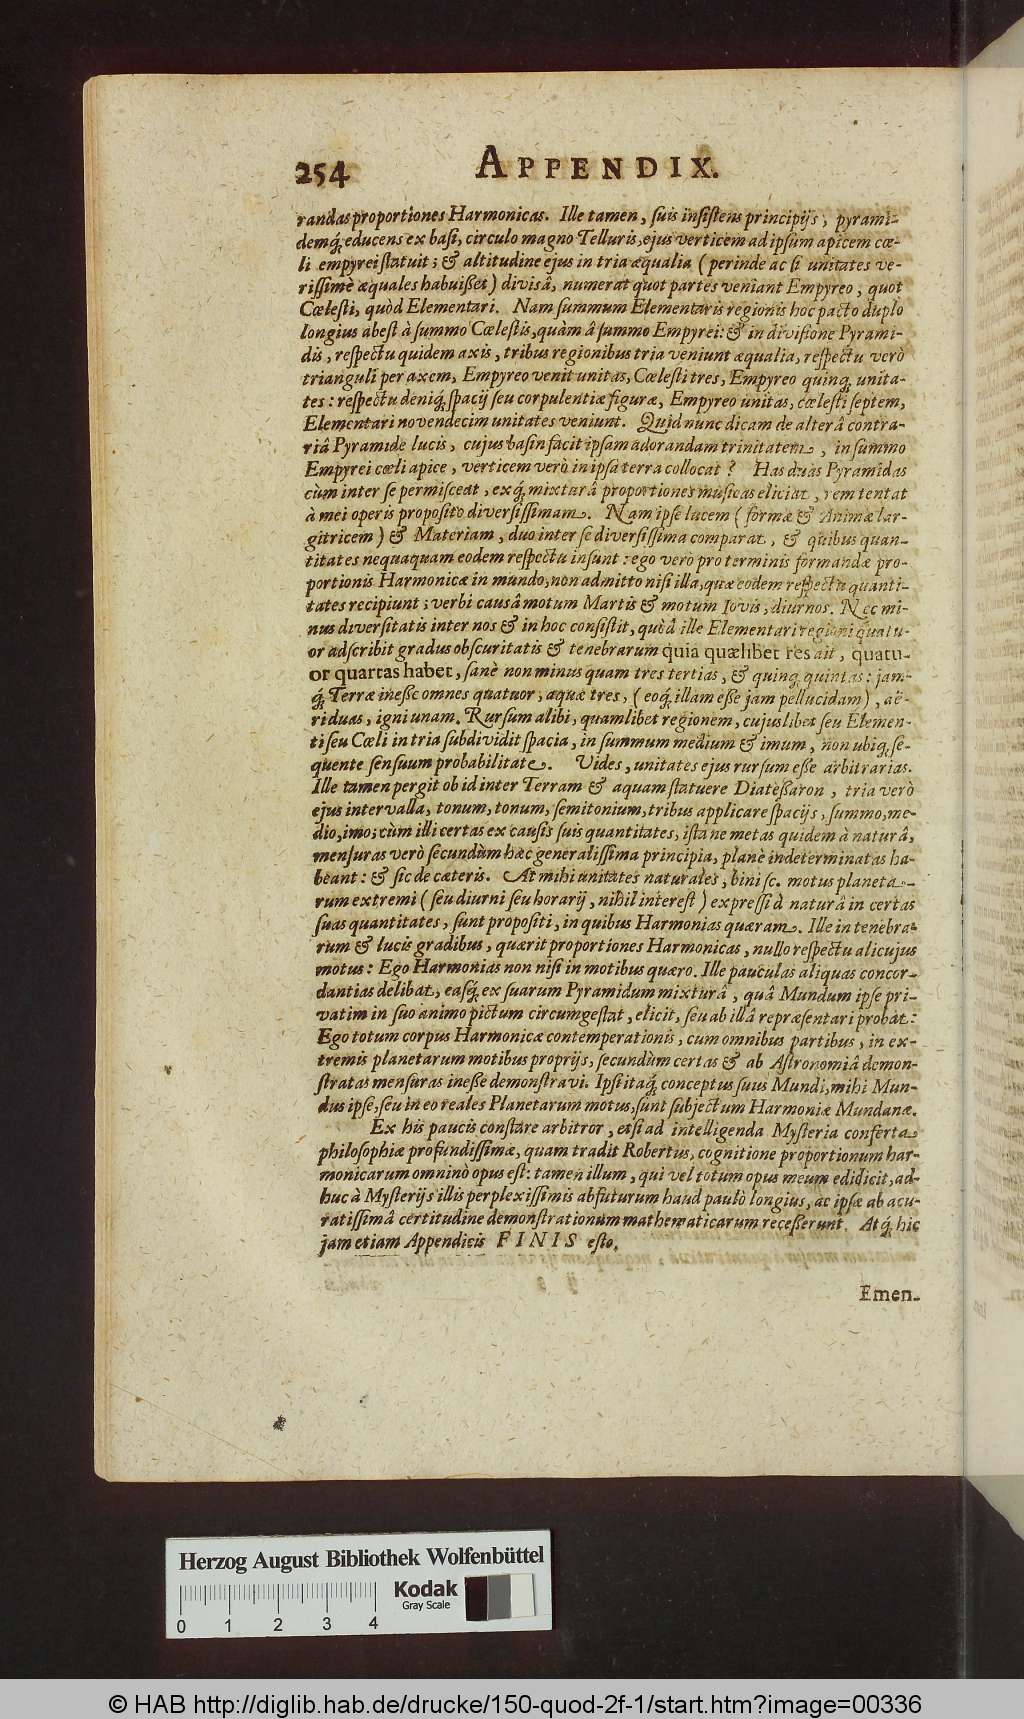 254 APPENDIX.
randas proportiones Harmonicas. Ille tamen, suis insistens principijs, pyrami-
demq́; educens ex basi, circulo magno Telluris, ejus verticem ad ipsum apicem cœ-
li empyrei statuit; & altitudine ejus in tria æqualia (perinde ac si unitates ve-
rissimè æquales habuißet) divisâ, numerat quot partes veniant Empyreo, quot
Cœlesti, quòd Elementari. Nam summum Elementaris regionis hoc pacto duplo
longius abest à summo Cœlestis, quàm â summo Empyrei: & in divisione Pyrami-
dis, respectu quidem axis, tribus regionibus tria veniunt æqualia, respectu verò
trianguli per axem, Empyreo venit unitas, Cœlesti tres, Empyreo quinq; unita-
tes: respectu deniq; spacij seu corpulentiæ figuræ, Empyreo unitas, cœlesti septem,
Elementari novendecim unitates veniunt. Quid nunc dicam de alterâ contra-
riâ Pyramide lucis, cujus basin facit ipsam adorandam trinitatem, in summo
Empyrei cœli apice, verticem verò in ipsa terra collocat? Has duas Pyramidas
cùm inter se permisceat, exq́; mixturâ proportiones musicas eliciat, rem tentat
à mei operis proposito diversissimam. Nam ipse lucem (formæ & Animæ lar-
gitricem) & Materiam, duo inter se diversissima comparat, & quibus quan-
titates nequaquam eodem respectu insunt: ego verò pro terminis formandæ pro-
portionis Harmonicæ in mundo, non admitto nisi illa, quæ eodem respectu quanti-
tates recipiunt; verbi causâ motum Martis & motum Iovis, diurnos. Nec mi-
nus diversitatis inter nos & in hoc consistit, quòd ille Elementari regioni quatu-
or adscribit gradus obscuritatis & tenebrarum quia quælibet res ait, quatu-
or quartas habet, sanè non minus quam tres tertias, & quinq; quintas: jam-
q́; Terræ ineße omnes quatuor, aquæ tres, (eoq́; illam eße jam pellucidam), aë-
ri duas, igni unam. Rursum alibi, quamlibet regionem, cujuslibet seu Elemen-
ti seu Cœli in tria subdividit spacia, in summum medium & imum, non ubiq; se-
quente sensuum probabilitate. Vides, unitates ejus rursum eße arbitrarias.
Ille tamen pergit ob id inter Terram & aquam statuere Diateßaron, tria verò
ejus intervalla, tonum, tonum, semitonium, tribus applicare spacijs, summo, me-
dio, imo; cùm illi certas ex causis suis quantitates, ista ne metas quidem à naturâ,
mensuras verò secundùm hæc generalissima principia, planè indeterminatas ha-
beant: & sic de cæteris. At mihi unitates naturales, bini sc. motus planeta-
rum extremi (seu diurni seu horarij, nihil interest) expressi à naturâ in certas
suas quantitates, sunt propositi, in quibus Harmonias quæram. Ille in tenebra-
rum & lucis gradibus, quærit proportiones Harmonicas, nullo respectu alicujus
motus: Ego Harmonias non nisi in motibus quæro. Ille pauculas aliquas concor-
dantias delibat, easq́; ex suarum Pyramidum mixturâ, quâ Mundum ipse pri-
vatim in suo animo pictum circumgestat, elicit, seu ab illâ repræsentari probat:
Ego totum corpus Harmonicæ contemperationis, cum omnibus partibus, in ex-
tremis planetarum motibus proprijs, secundùm certas & ab Astronomiâ demon-
stratas mensuras ineße demonstravi. Ipsi itaq́; conceptus suus Mundi, mihi Mun-
dus ipse, seu in eo reales Planetarum motus, sunt subjectum Harmoniæ Mundanæ.
Ex his paucis constare arbitror, etsi ad intelligenda Mysteria conferta
philosophiæ profundissimæ, quam tradit Robertus, cognitione proportionum har-
monicarum omninò opus est: tamen illum, qui vel totum opus meum edidicit, ad-
huc à Mysterijs illis perplexissimis abfuturum haud paulò longius, ac ipsæ ab acu-
ratissimâ certitudine demonstrationum mathematicarum receßerunt. Atq́; hic
jam etiam Appendicis FINIS esto.
Emen-
Herzog August Bibliothek Wolfenbüttel
Kodak
Gray Scale
0 1 2 3 4
© HAB http://diglib.hab.de/drucke/150-quod-2f-1/start.htm?image=00336